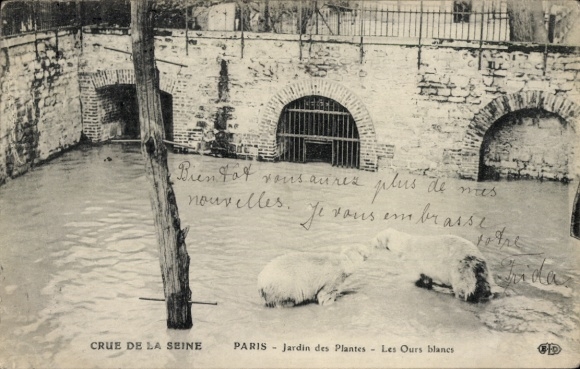 Bientôt vous aurez plus de mes
nouvelles. Je vous embrasse
votre
Frida
CRUE DE LA SEINE PARIS - Jardin des Plantes - Les Ours blancs ELD